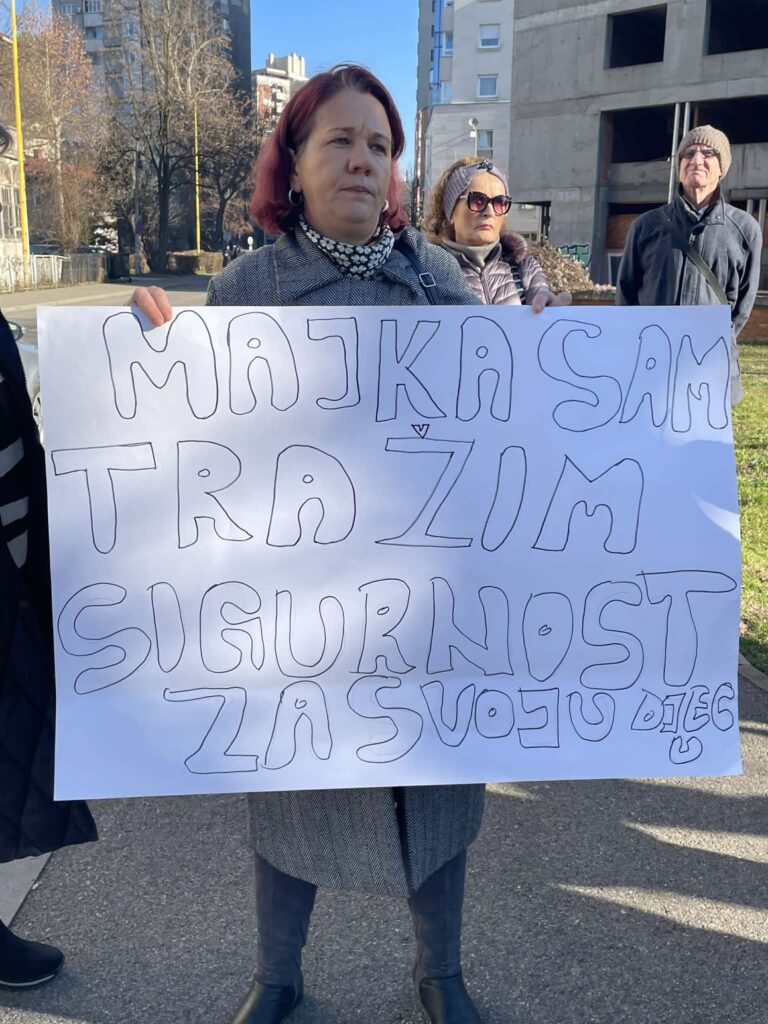 MAJKA SAM
TRAŽIM
SIGURNOST
ZA SVOJU DJEC
U